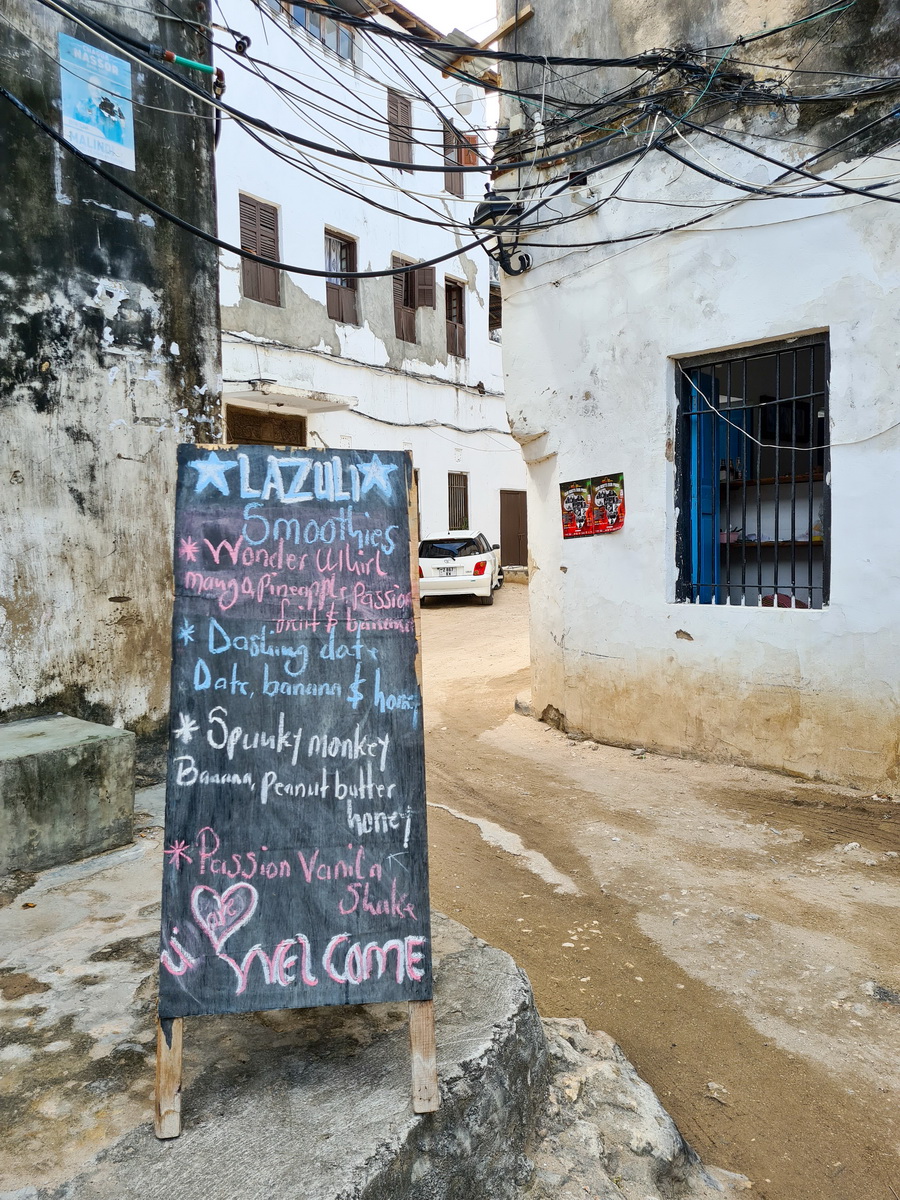 HASSAN
MALINDI
LAZULI
Smoothies
* Wonder Whirl
mango, Pineapple, Passion
fruit & banana
* Dashing date
Date, banana & honey
* Spunky monkey
Banana, Peanut butter
honey
* Passion Vanila
Shake
WELCOME